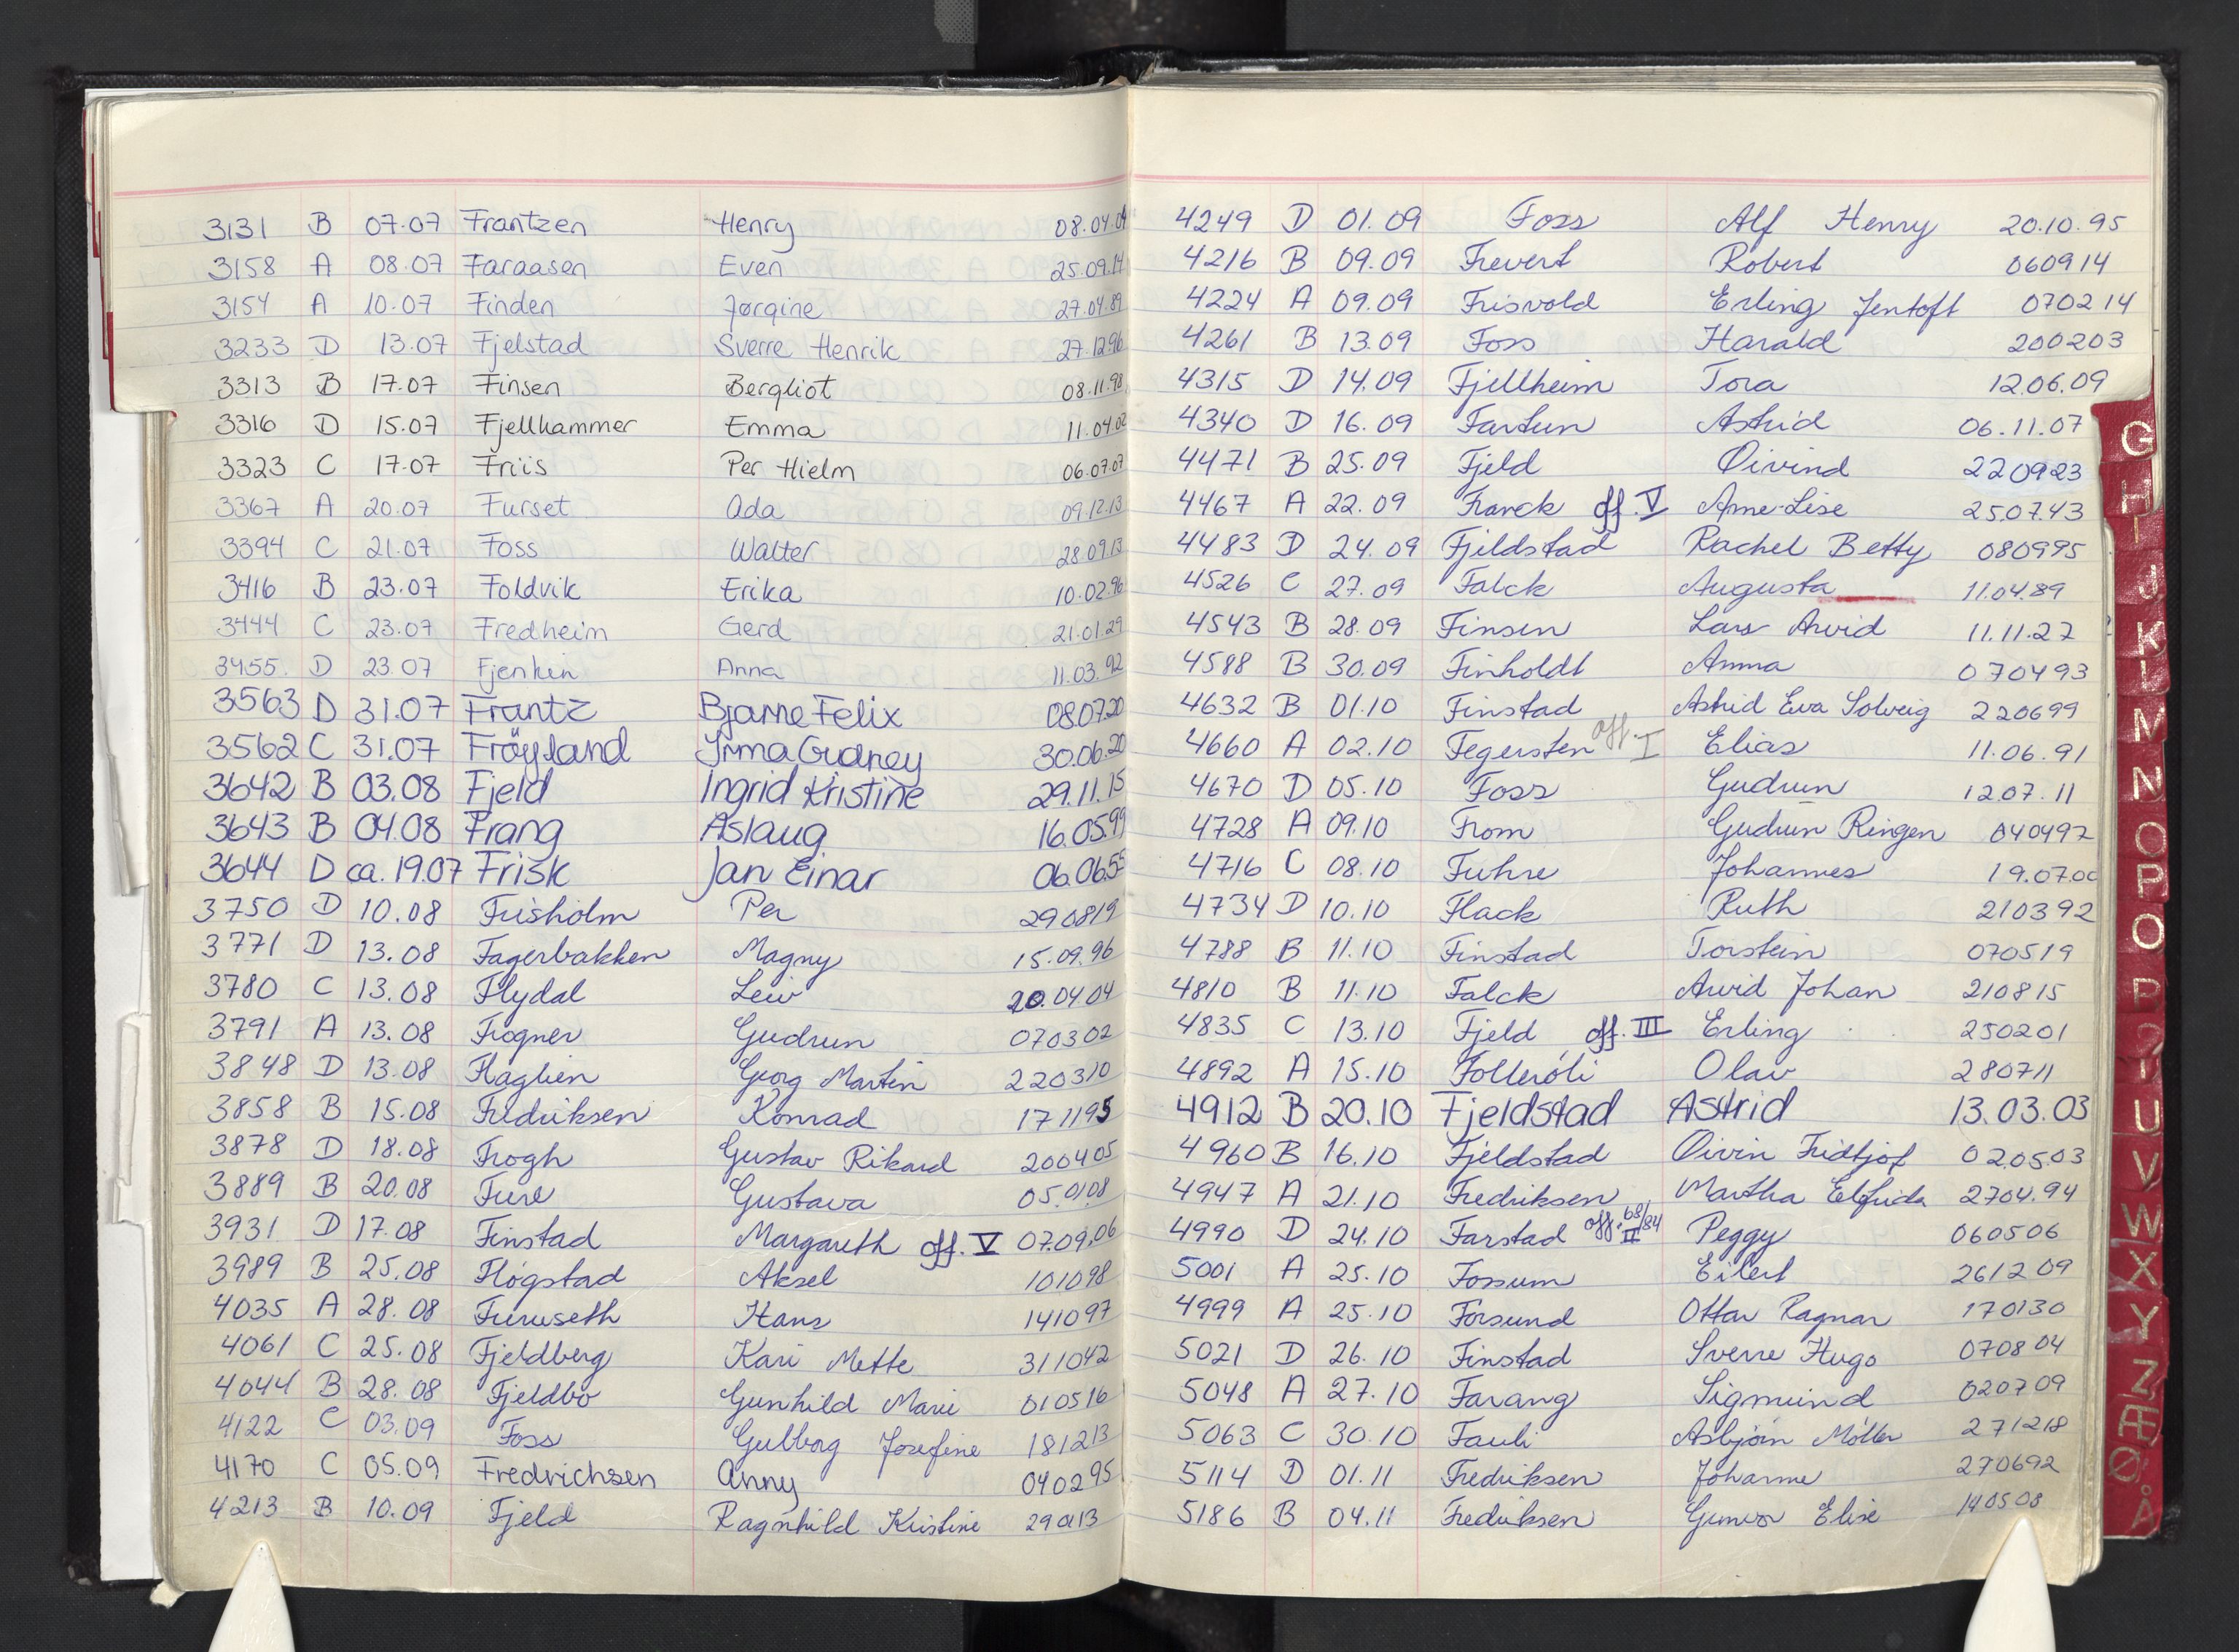 3131 B 07.07 Frantzen Henry 08.04.04
3158 A 08.07 Faraasen Even 25.09.14
3154 A 10.07 Finden Jørgine 27.04.89
3233 D 13.07 Fjelstad Sverre Henrik 27.12.96
3313 B 17.07 Finsen Bergliot 08.11.98
3316 D 15.07 Fjellhammer Emma 11.04.02
3323 C 17.07 Friis Per Hielm 06.07.07
3367 A 20.07 Furset Ada 09.12.13
3394 C 21.07 Foss Walter 28.09.13
3416 B 23.07 Foldvik Erika 10.02.96
3444 C 23.07 Fredheim Gerd 21.01.29
3455. D 23.07 Fjenkin Anna 11.03.92
3563 D 31.07 Frantz Bjarne Felix 08.07.20
3562 C 31.07 Fröyland Irma Gudney 30.06.20
3642 B 03.08 Fjeld Ingrid Kristine 29.11.15
3643 B 04.08 Frang Aslaug 16.05.99
3644 D ca. 19.07 Frisk Jan Einar 06.06.55
3750 D 10.08 Frisholm Per 290819
3771 D 13.08 Fagerbakken Magny 15.09.96
3780 C 13.08 Flydal Leiv 20.04 04
3791 A 13.08 Frogner Gudrun 070302
3848 D 13.08 Flaglien Georg Martin 220310
3858 B 15.08 Fredriksen Konrad 171195
3878 D 18.08 Frogh Gustav Rikard 200405
3889 B 20.08 Fure Gustava 05.0108
3931 D 17.08 Finstad Margareth off. V 07.09.06
3989 B 25.08 Flógstad Aksel 101098
4035 A 28.08 Furuseth Hans 141097
4061 C 25.08 Fjeldberg Kari Mette 311042
4044 B 28.08 Fjeldbo Gunhild Marie 010516
4122 C 03.09 Foss Gulborg Josefine 181213
4170 C 05.09 Fredrichsen Anny 040295
4213 B 10.09 Fjeld Ragnhild Kristine 290113
4249 D 01.09 Foss Alf Henry 20.10.95
4216 B 09.09 Frevert Robert 060914
4224 A 09.09 Frisvold Erling Jentoft 070214
4261 B 13.09 Foss Harald 200203
4315 D 14.09 Fjellheim Tora 12.06.09
4340 D 16.09 Fartun Astrid 06.11.07
4471 B 25.09 Fjeld Øivind 220923
4467 A 22.09 Franck off. V Anne-Lise 25.07.43
4483 D 24.09 Fjeldstad Rachel Betty 080995
4526 C 27.09 Falck Augusta 11.04.89
4543 B 28.09 Finsen Lars Arvid 11.11.27
4588 B 30.09 Finholdt Anna 070493
4632 B 01.10 Finstad Astrid Eva Solveig 220699
4660 A 02.10 Fegersten off. I Elias 11.06.91
4670 D 05.10 Foss Gudrun 12.07.11
4728 A 09.10 From Gudrun Ringen 040497
4716 C 08.10 Fuhre Johannes 19.07.00
4734 D 10.10 Flack Ruth 210392
4788 B 11.10 Finstad Torstein 070519
4810 B 11.10 Falck Arvid Johan 210815
4835 C 13.10 Fjeld off. III Erling 250201
4892 A 15.10 Folleróli Olav 280711
4912 B 20.10 Fjeldstad Astrid 13.03.03
4960 B 16.10 Fjeldstad Øivin Fridtjof 02.05.03
4947 A 21.10 Fredriksen Martha Elfrida 2704.94
4990 D 24.10 Farstad off. 68/84 II Peggy 060506
5001 A 25.10 Fossum Eilert 261209
4999 A 25.10 Forsund Ottar Ragnar 170130
5021 D 26.10 Finstad Sverre Hugo 070804
5048 A 27.10 Farang Sigmund 020709
5063 C 30.10 Fauli Asbjørn Möller 271218
5114 D 01.11 Fredriksen Johanne 270692
5186 B 04.11 Fredriksen Gunvor Elise 140508
G
H
I
J
K
L
M
N
O
P
O
P
U
V
W
X
Y
Z
Æ
Ø
Å